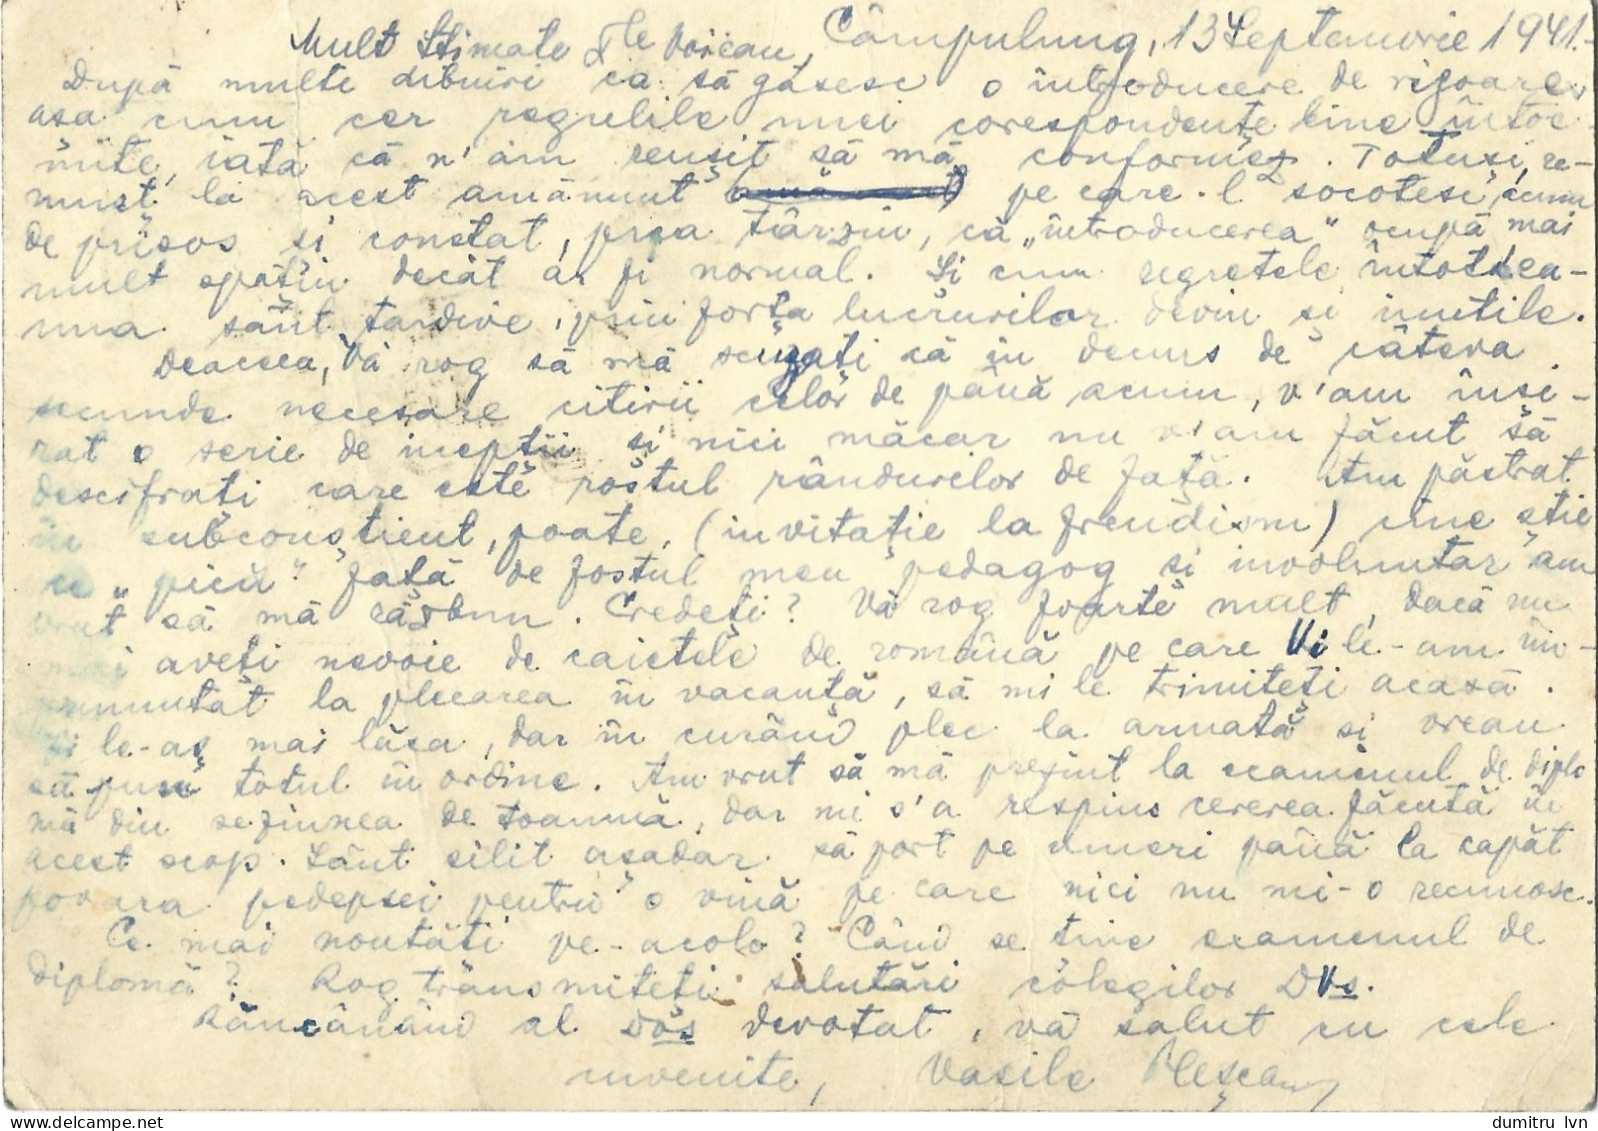 Câmpulung, 13 Septemvrie 1941.-
Mult Stimate Dle Voicau,
După multe dibuiri ca să găsesc o introducere de rigoare,
asa cum cer regulile unei corespondențe bine întoc-
mite, iată că n'am reușit să mă conformez. Totuși, re-
nunț la acest amănunt pe care-l socotesc, acum
de prisos și constat, prea târziu, că „introducerea" ocupă mai
mult spațiu decât ar fi normal. Și cum regretele întotdea-
una sânt tardive, prin forța lucrurilor devin și inutile.
Deaceea, Vă rog să mă scuzați că în decurs de câteva
secunde necesare citirii celor de până acum, v'am înși-
rat o serie de inepții și nici măcar nu v'am făcut să
descifrați care este rostul rândurilor de față. Am păstrat
în subconștient, poate, (invitație la freudism) cine știe
ce „pică" față de fostul meu pedagog și involuntar am
vrut să mă răzbun. Credeți? Vă rog foarte mult, dacă nu
mai aveți nevoie de caietele de română pe care Vi le-am îm-
prumutat la plecarea în vacanță, să mi le trimiteți acasă.
Vi le-aș mai lăsa, dar în curând plec la armată și vreau
să pun totul în ordine. Am vrut să mă prezint la examenul de diplo
mă din seziunea de toamnă, dar mi s'a respins cererea făcută în
acest scop. Sânt silit așadar să port pe umeri până la capăt
povara pedepsei pentru o vină pe care nici nu mi-o recunosc.
Ce mai noutăți pe-acolo? Când se ține examenul de
diplomă? Rog transmiteți salutări colegilor Dvs.
Rămânând al Dvs devotat, vă salut cu cele
cuvenite, Vasile Pleșca
dumitru lvn